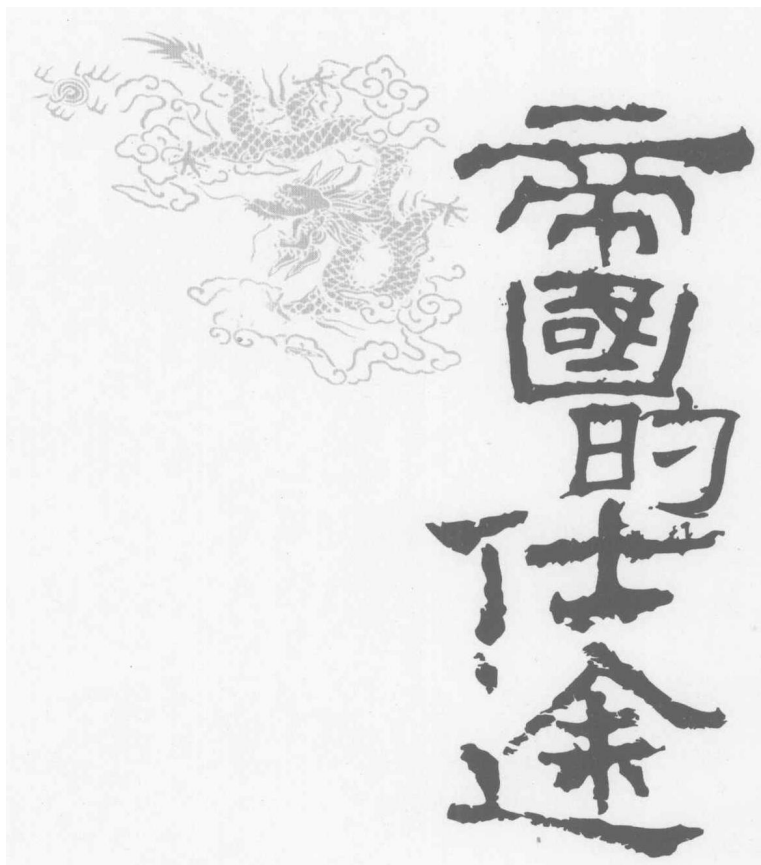 帝國的仕途